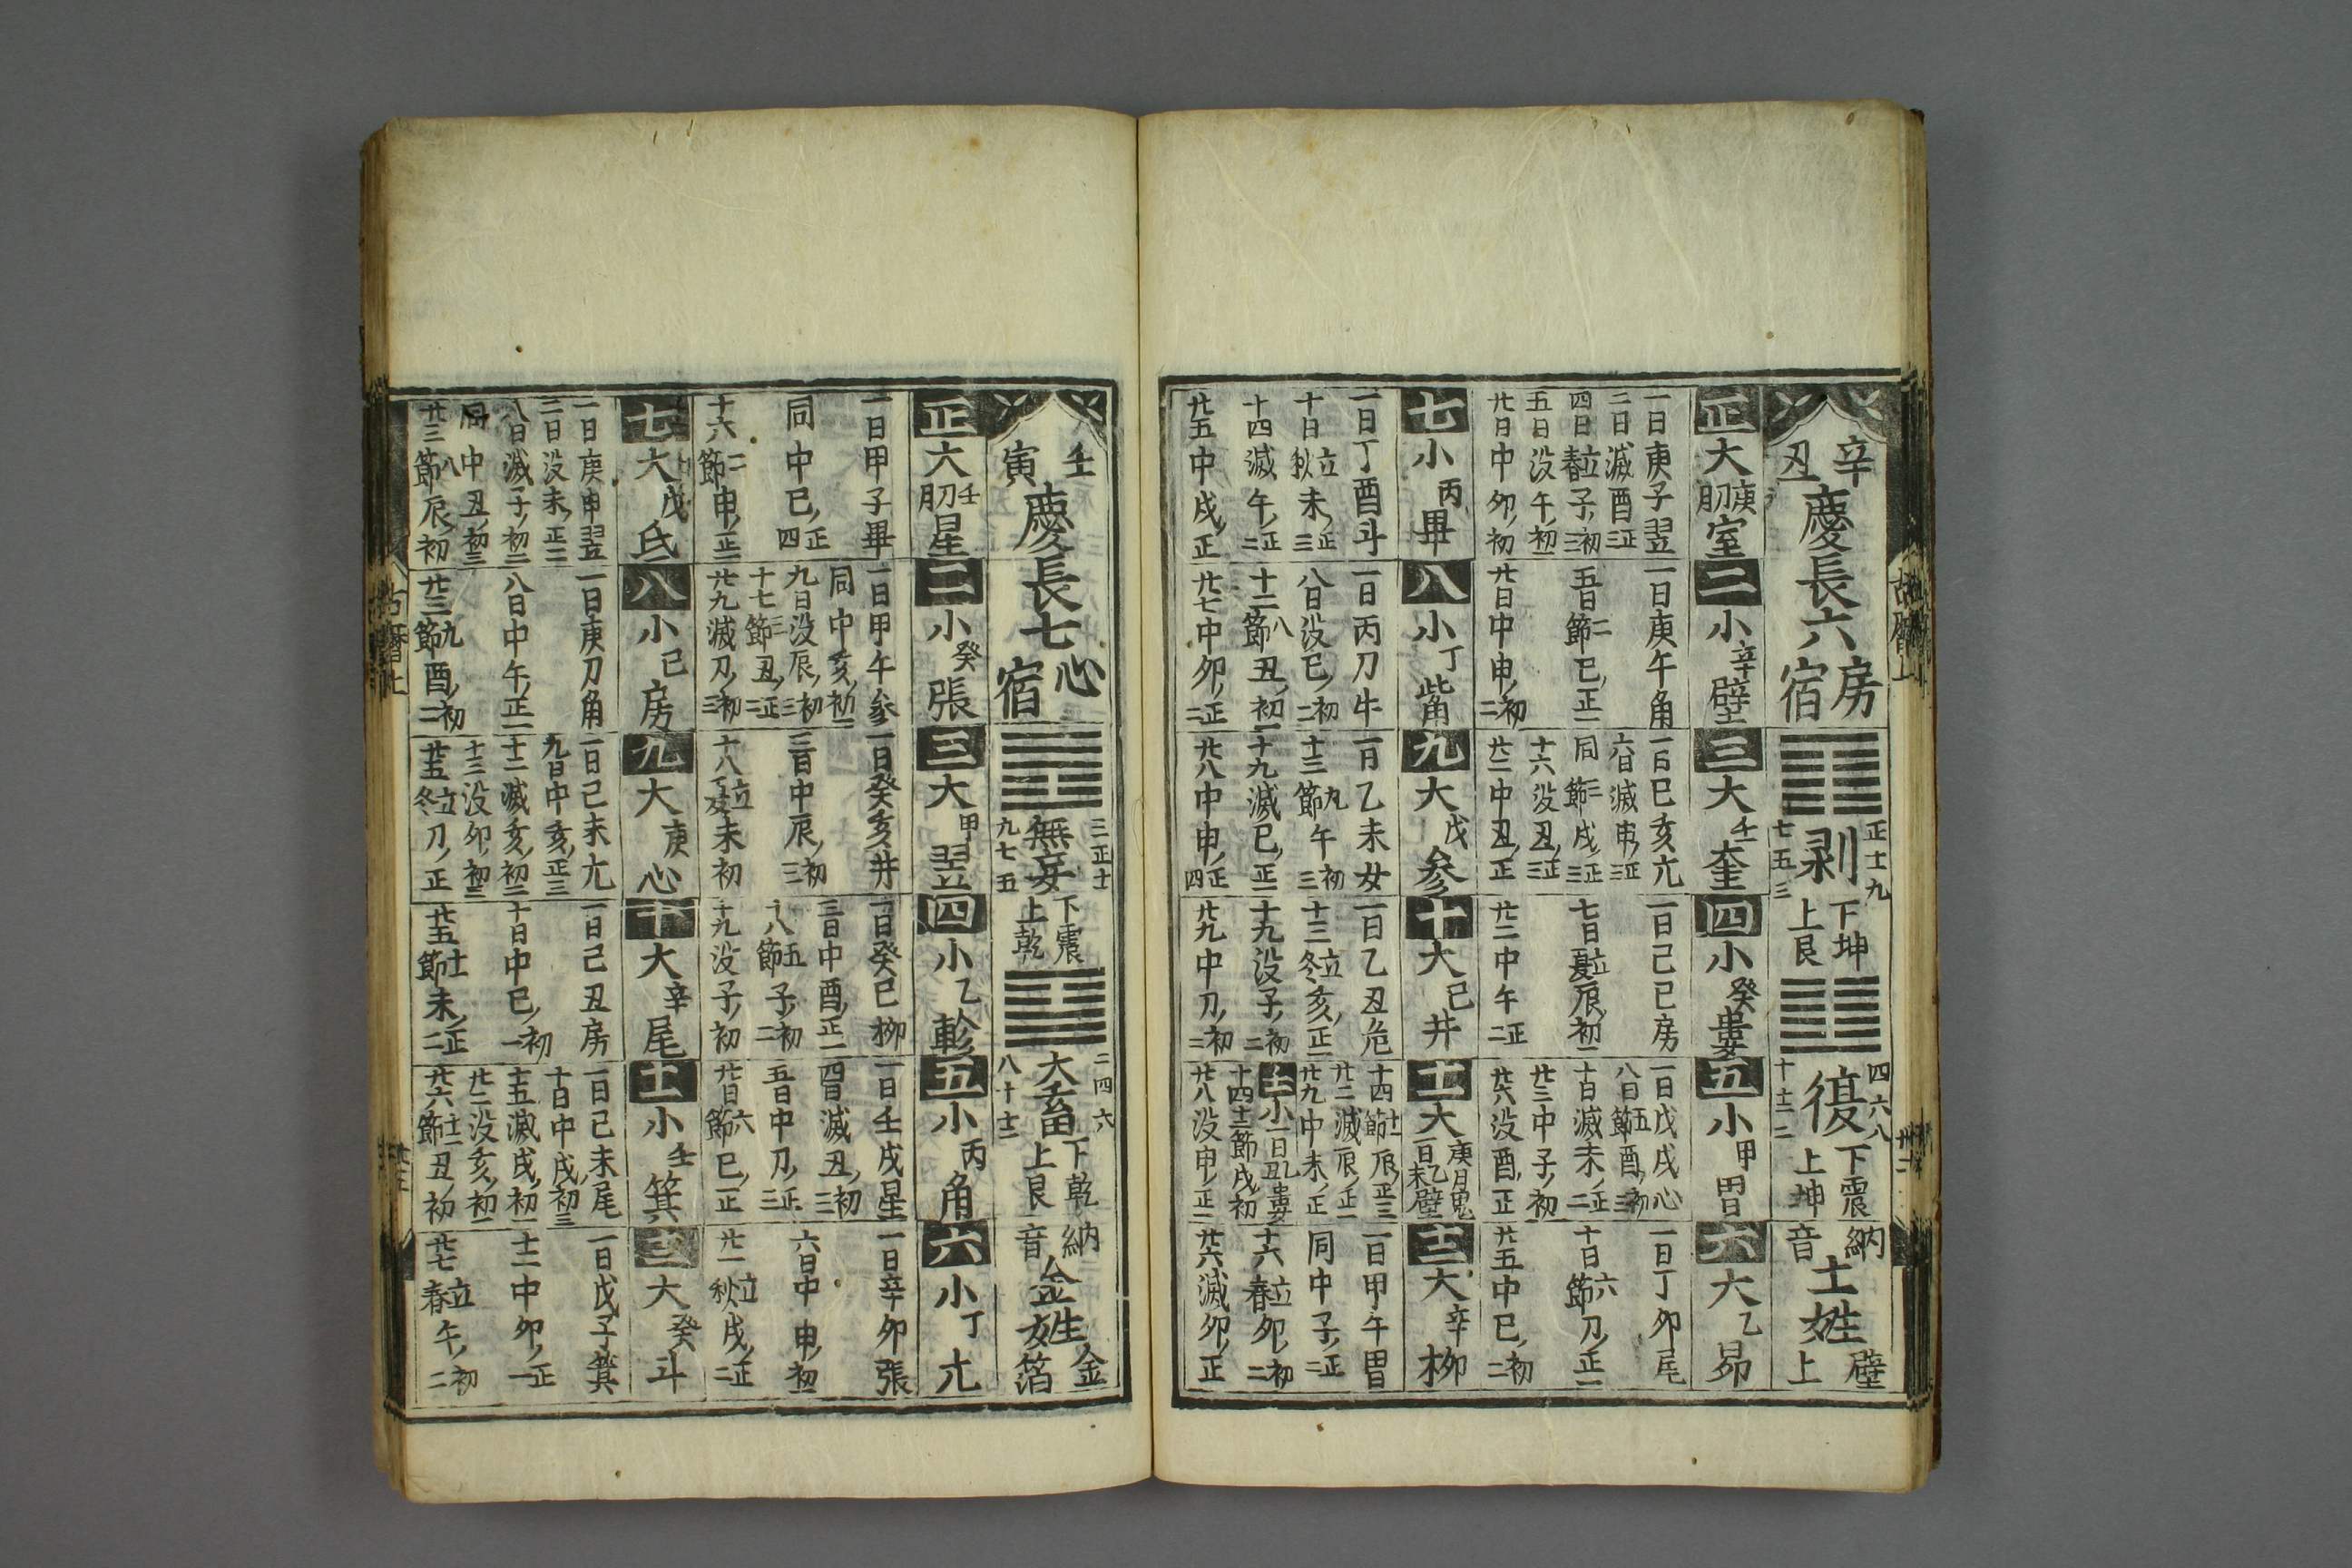 辛丑
慶長六
房宿
剥
正十一九
七五三
下坤
上艮
復
四六八
十十二二
下震
上坤
納音
土姓
壁上
正大
庚
室
一日庚子翌
二日滅酉正三
四日立春子初三
五日没午初一
廿日中卯初
二小辛壁
一日庚午角
五日二節巳正一
廿日中申初二
三大壬奎
一日巳亥亢
六日滅申正三
同三節戌正三
十六没丑正三
廿一中丑正
四小癸婁
一日己巳房
七日立夏辰初一
廿二中午正二
五小甲胃
一日戊戌心
八日五節酉初三
十日滅未正二
廿三中子初一
廿六没酉正一
六大乙昴
一日丁卯尾
十日六節刀正一
廿五中巳初二
七小丙畢
一日丁酉斗
十日立秋未正三
十四滅午正二
廿五中戌正
八小丁觜
一日丙刀牛
八日没巳初二
十二八節丑初一
廿七中卯正二
九大戊参
一日乙未女
十三九節午初三
十九滅巳正一
廿八中申正四
十大己井
一日乙丑危
十三立冬亥正一
十九没子初二
廿九中刀初二
十一大庚
一日乙未壁
十四十一節辰正三
廿二滅辰正一
廿九中未正
小一日乙丑婁
十四十二節戌初
廿八没申正一
十二大辛柳
一日甲午胃
同中子正二
十六立春卯初二
廿六滅卯正
古暦上
壬寅
慶長七
心宿
無妄
三正十一
九七五
下震
上乾
大畜
二四六
八十十二
下乾
上艮
納音
金姓
金箔
正大
壬
星
一日甲子畢
同中巳正四
十六二節申正一
二小癸張
一日甲午参
同中亥初一
九日没辰初三
十七三節丑正二
廿九滅刀初三
三大甲翌
一日癸亥井
三日中辰初三
十八立夏未初
四小乙軫
一日癸巳柳
三日中酉正一
十八五節子初二
十九没子初
五小丙角
一日壬戌星
四日滅丑初三
五日中刀正二
廿日六節巳正一
六小丁亢
一日辛卯張
六日中申初一
廿一立秋戌正二
七大戊氐
一日庚申翌
二日没未正二
八日滅子初二
同中丑初三
廿三八節辰初
八小己房
一日庚刀角
八日中午正一
廿三九節酉初二
九大庚心
一日己未亢
九日中亥正三
十二滅亥初二
十三没卯初二
廿五立冬刀正
十大辛尾
一日己丑房
十日中巳初一
廿五十一節未正二
十一小壬箕
一日己未尾
十日中戌初三
十五滅戌初一
廿二没亥初一
廿六十二節丑初
十二大癸斗
一日戊子箕
十二中卯正一
廿七立春午初二
古暦上